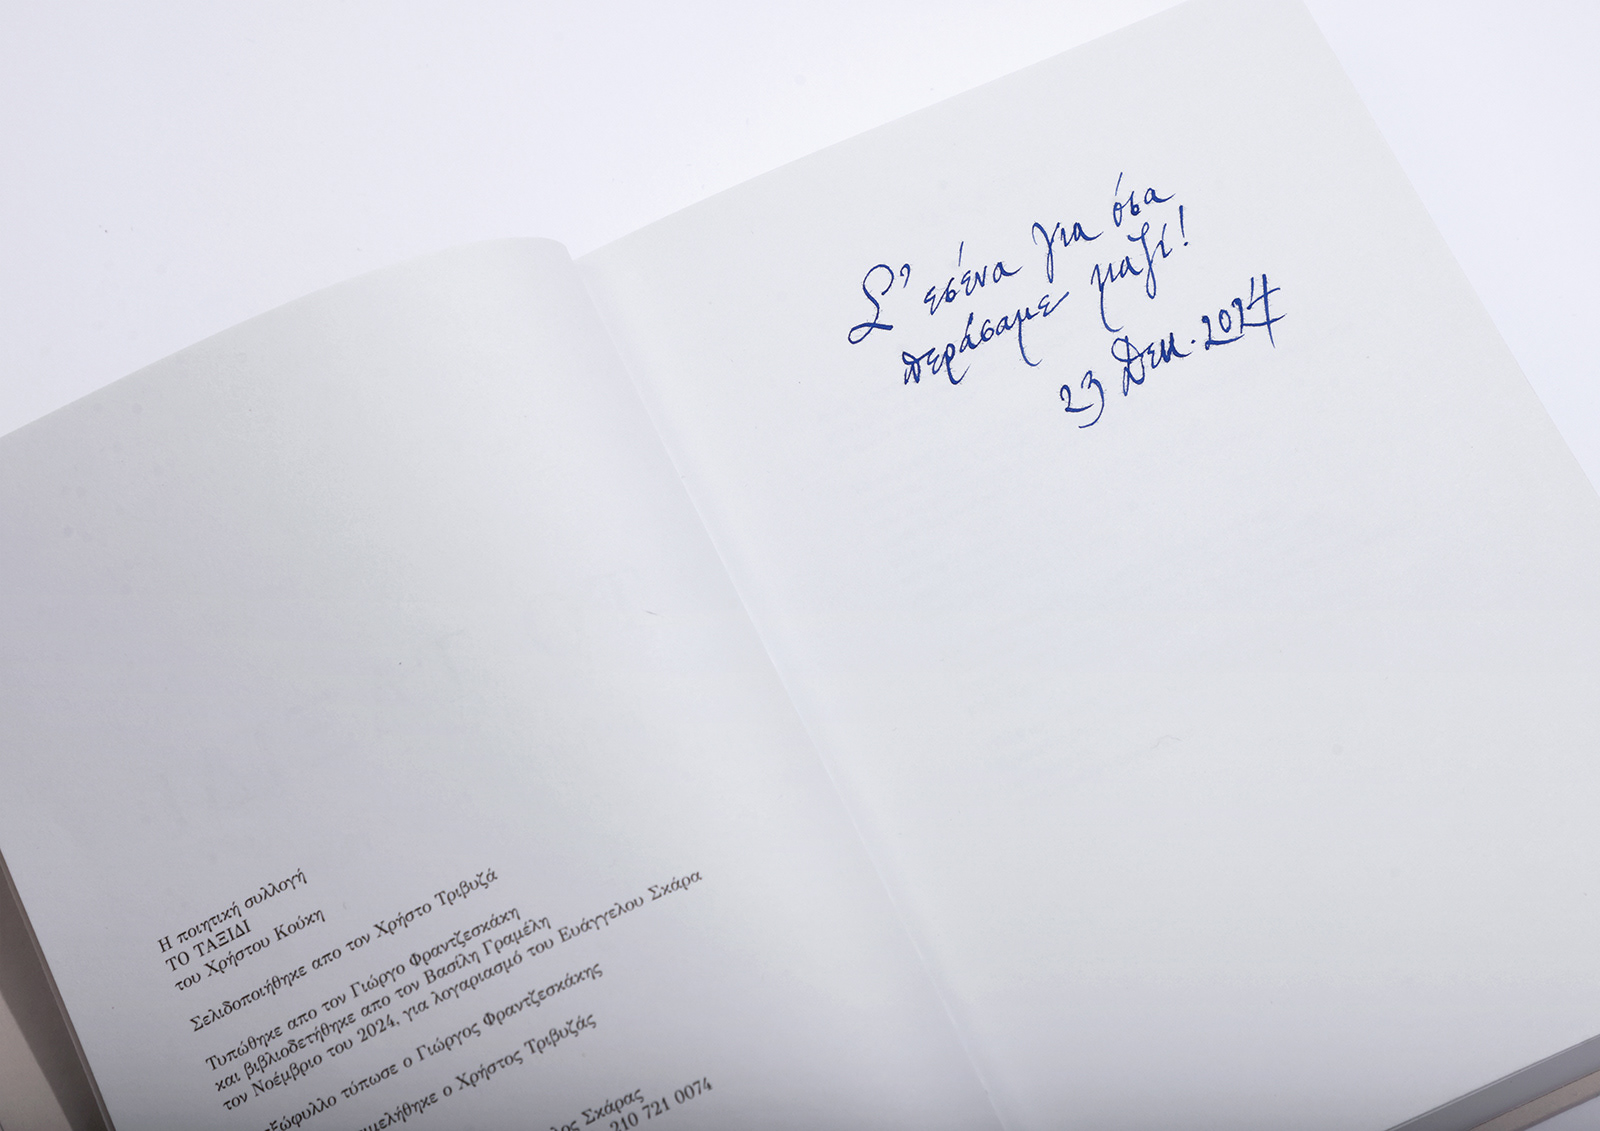 Σ' εσένα για όσα
περάσαμε μαζί!
23 Δεκ. 2024
Η ποιητική συλλογή
ΤΟ ΤΑΞΙΔΙ
του Χρήστου Κούκη
Σελιδοποιήθηκε απο τον Χρήστο Τριβυζά
Τυπώθηκε απο τον Γιώργο Φραντζεσκάκη
και βιβλιοδετήθηκε απο τον Βασίλη Γραμέλη
τον Νοέμβριο του 2024, για λογαριασμό του Ευάγγελου Σκάρα
τύπωσε ο Γιώργος Φραντζεσκάκης
ο Χρήστος Τριβυζάς
Σκάρας
210 721 0074